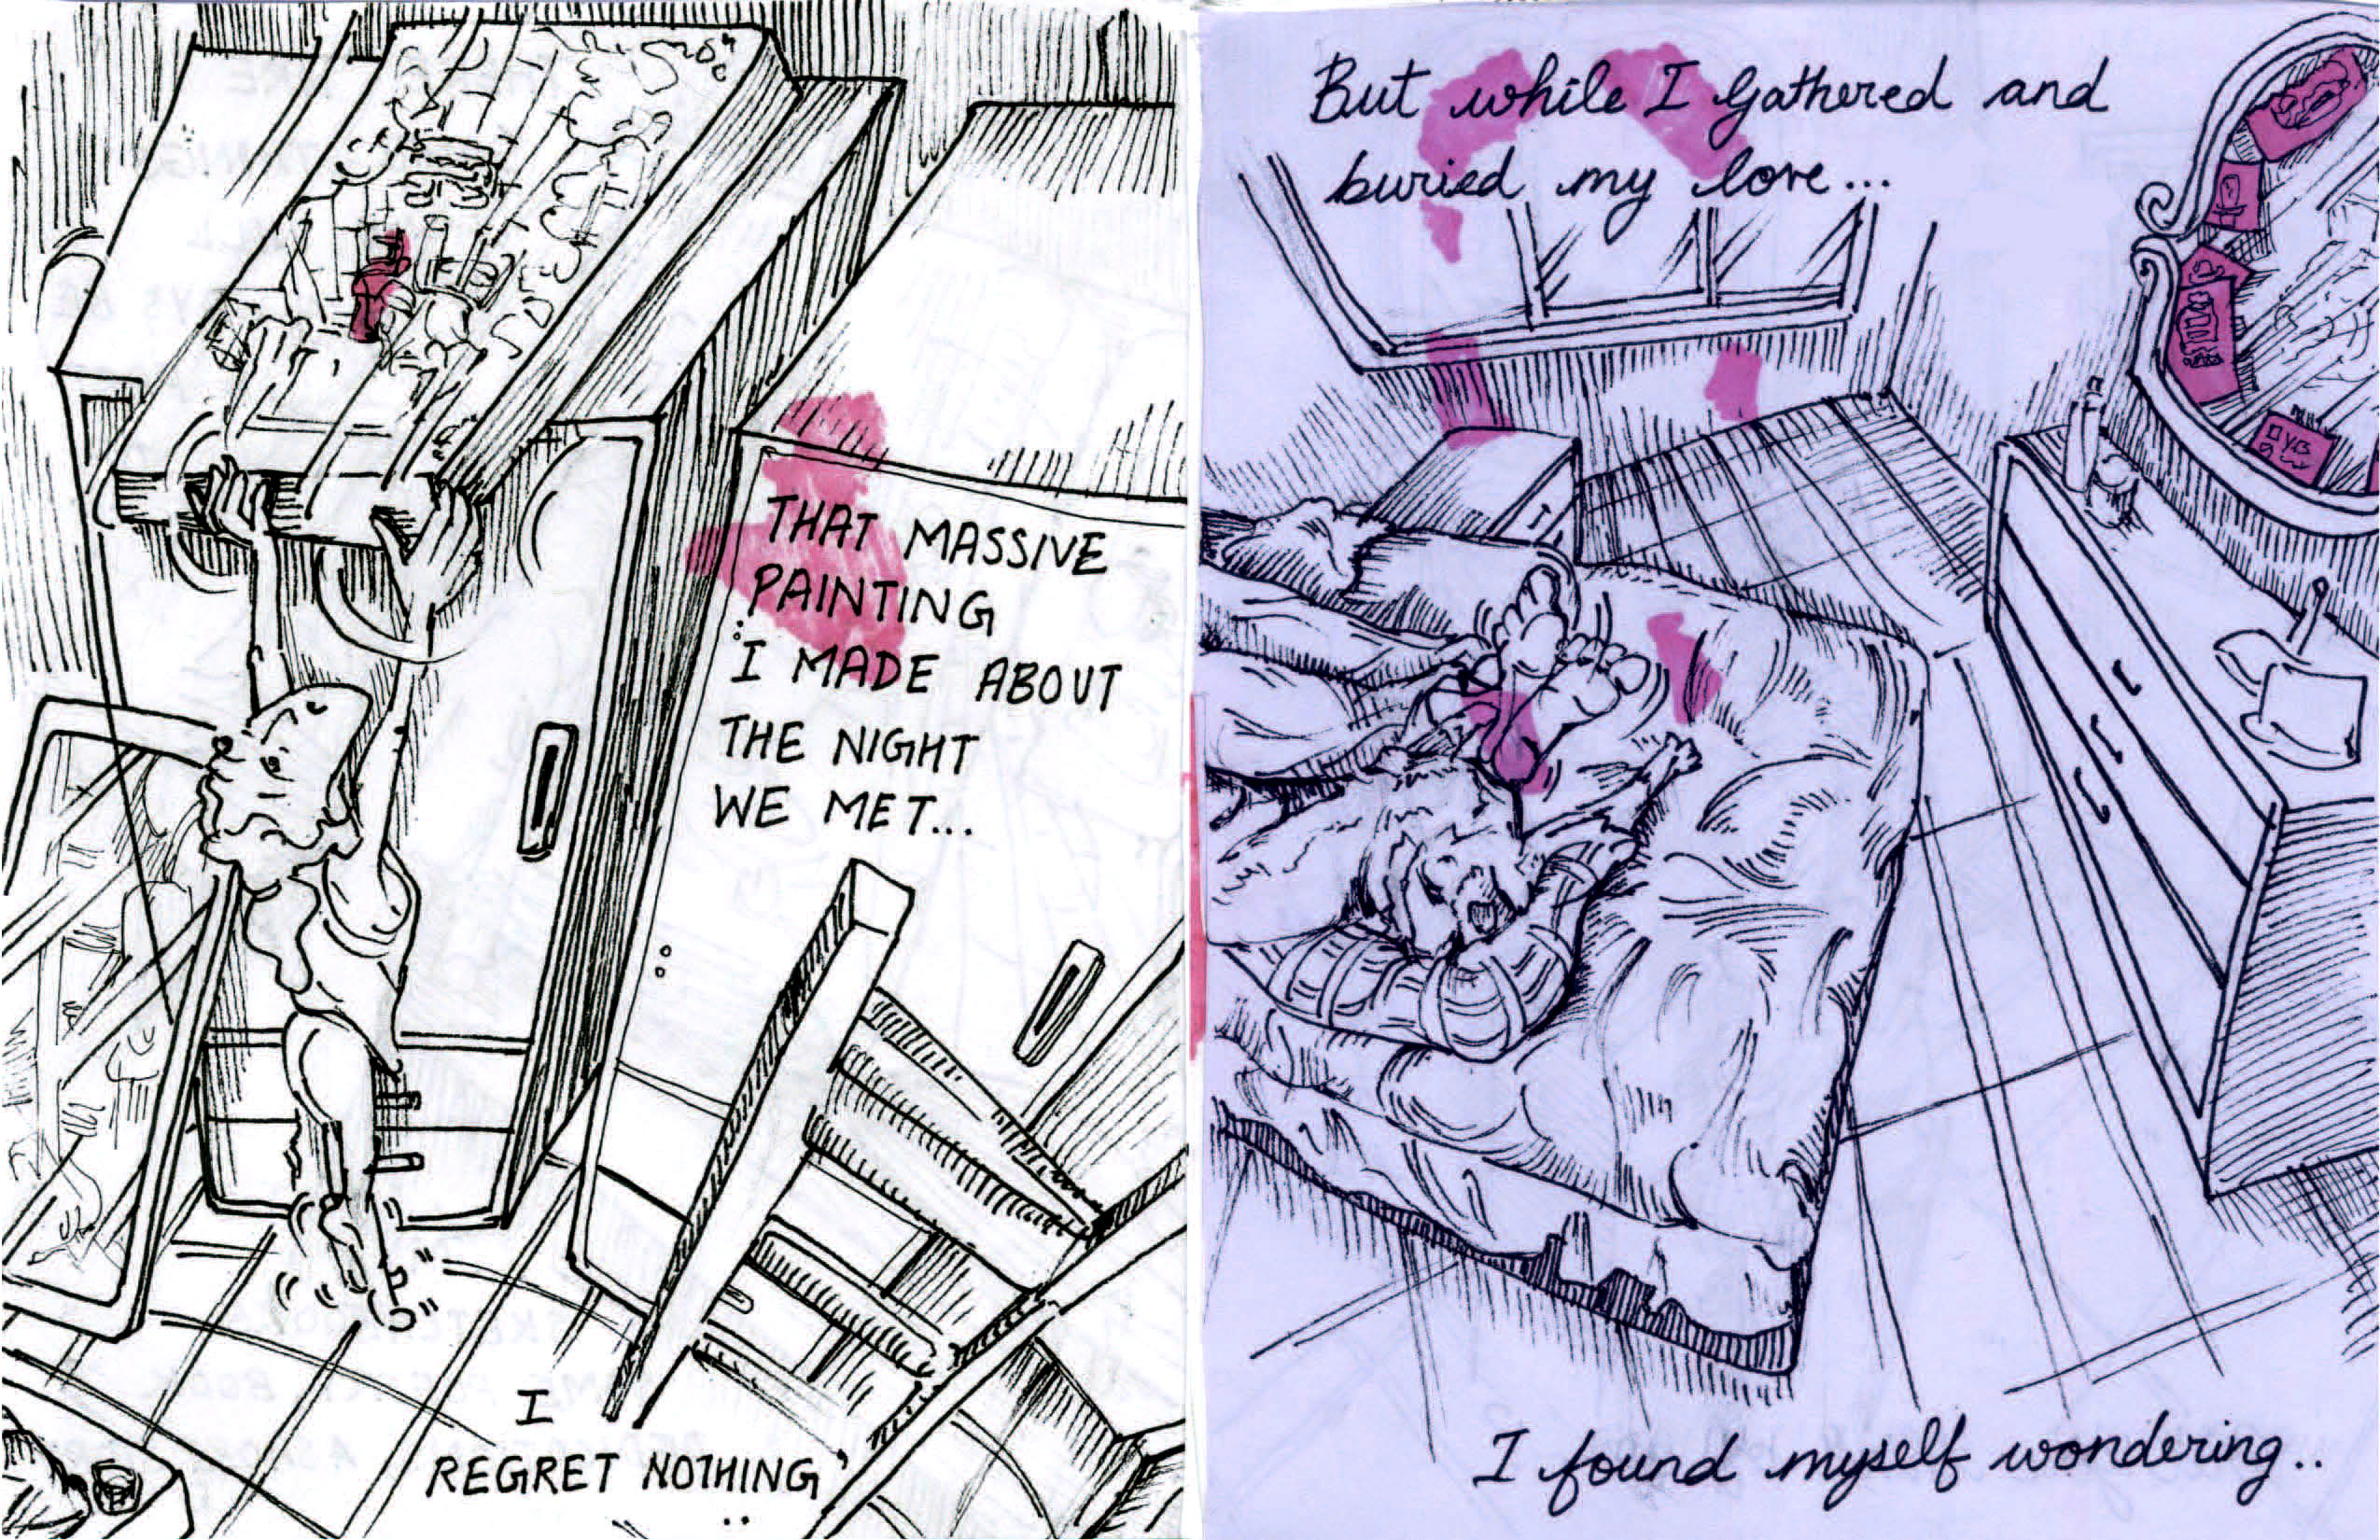 THAT MASSIVE
PAINTING
I MADE ABOUT
THE NIGHT
WE MET...
I
REGRET NOTHING
But while I gathered and
buried my love...
I found myself wondering..